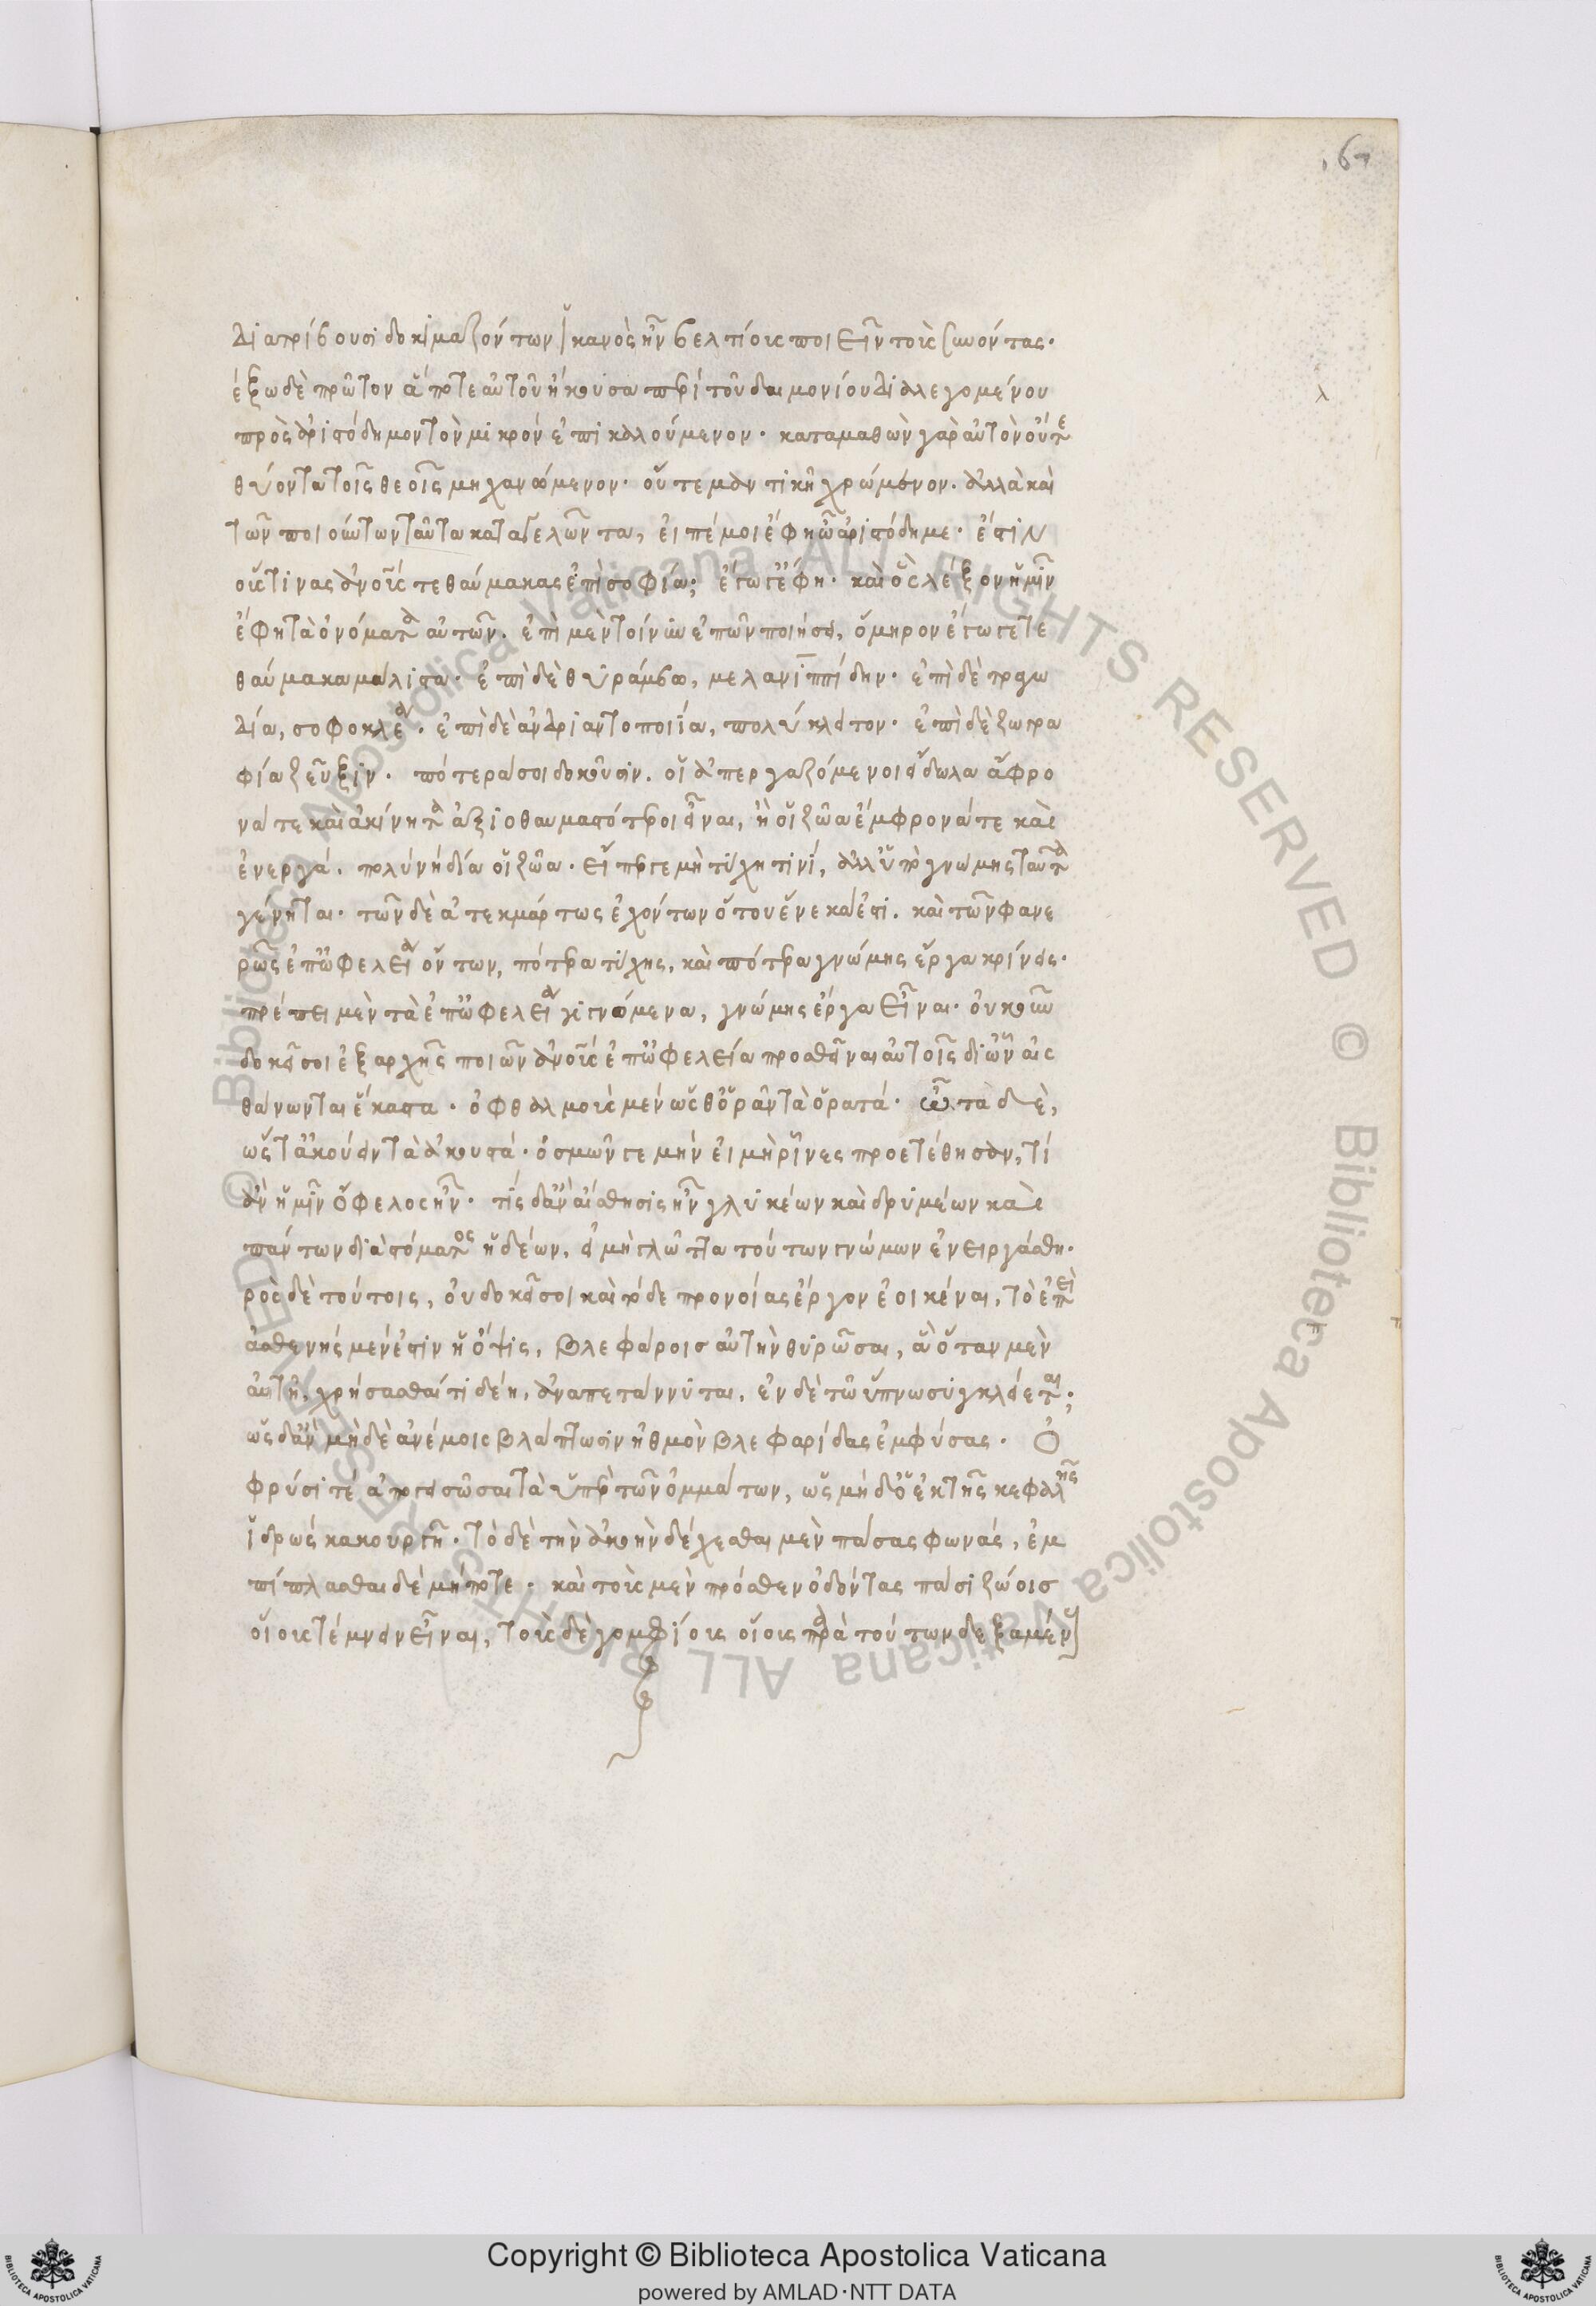 167
διατρίβουσι δοκιμαζόντων ἱκανὸς ἦν βελτίους ποιεῖν τοὺς συνόντας·
λέξω δὲ πρῶτον ἅ ποτε αὐτοῦ ἤκουσα περὶ τοῦ δαιμονίου διαλεγομένου
πρὸς ἀριστόδημον τὸν μικρὸν ἐπικαλούμενον· καταμαθὼν γὰρ αὐτὸν οὔτε
θύοντα τοῖς θεοῖς μηχανώμενον· οὔτε μαντικῇ χρώμενον. ἀλλὰ καὶ
τῶν ποιούντων ταῦτα καταγελῶντα, εἰπέ μοι ἔφη ὦ ἀριστόδημε· ἔστιν
οὕστινας ἀνους τεθαύμακας ἐπὶ σοφία; ἔγωγ ἔφη· καὶ ὃς λέξον ἡμῖν
ἔφη τὰ ὀνόματα αὐτῶν. ἐπὶ μὲν τοίνυν ἐπῶν ποιήσει, ὅμηρον ἔγωγε τε
θαύμακα μάλιστα· ἐπὶ δὲ θυράμβω, μελανιππίδην· ἐπὶ δὲ τραγω
δία, σοφοκλέα· ἐπὶ δὲ ἀνδριαντοποιΐα, πολύκλειτον· ἐπὶ δὲ ζωγρα
φία ζεῦξιν· πότερά σοι δοκοῦσιν. οἱ ἀπεργαζόμενοι εἴδωλα ἄφρο
νά τε καὶ ἀκίνητα ἀξιοθαυμαστότεροι εἶναι, ἢ οἱ ζῶα ἔμφρονά τε καὶ
ἐνεργά. πολὺ νὴ δία οἱ ζῶα· εἴπερ γε μὴ τύχη τινί, ἀλλ ὑπὸ γνώμης ταῦτα
γένηται· τῶν δὲ ἀτεκμάρτως ἐχόντων ὅτου ἕνεκά ἐστι. καὶ τῶν φανε
ρῶς ἐπ ὠφελεία ὄντων, πότερα τύχης, καὶ πότερα γνώμης ἔργα κρίνεις·
πρέπει μὲν τὰ ἐπ ὠφελεία γιγνόμενα, γνώμης ἔργα εἶναι· οὐκοῦν
δοκεῖ σοι ἐξ ἀρχῆς ποιῶν ἀνους ἐπ ὠφελεία προσθεῖναι αὐτοῖς δι ὧν αἰσ
θάνωνται ἕκαστα· ὀφθαλμοὺς μέν ὥσθ ὁρᾶν τὰ ὁρατά· ὦτα δὲ,
ὡς τ ἀκούειν τὰ ἀκουστά· ὀσμῶν γε μήν εἰ μὴ ῥῖνες προετέθησαν, τί
ἂν ἡμῖν ὄφελος ἦν· τίς δ ἂν αἴσθησις ἦν γλυκέων καὶ δριμέων καὶ
πάντων διὰ στόματος ἡδέων, εἰ μὴ γλῶττα τούτων γνώμων ἐνειργάσθη·
ρὸς δὲ τούτοις, οὐ δοκεῖ σοι καὶ τόδε προνοίας ἔργον ἐοικέναι, τὸ ἐπεὶ
ἀσθενής μέν ἐστιν ἡ ὄψις, βλεφάροισ αὐτὴν θυρῶσαι, ἃ ὅταν μὲν
αὐτῇ χρῆσασθαί τι δέη, ἀναπετάννυται, ἐν δὲ τῶ ὕπνω συγκλείεται;
ὡς δ ἂν μὴδὲ ἀνέμοις βλάπτωσιν ἠθμὸν βλεφαρίδας ἐμφύσας· Ὀ
φρύσι τέ ἀπογεισῶσαι τὰ ὑπὲρ τῶν ὀμμάτων, ὡς μὴ δ ὁ ἐκ τῆς κεφαλῆς
ἱδρώς κακουργῇ· τὸ δὲ τὴν ἀκοὴν δέχεσθαι μὲν πάσας φωνάς, ἐμ
πίπλασθαι δὲ μήποτε· καὶ τοὺς μὲν πρόσθεν ὀδόντας πᾶσι ζώοισ
οἵους τέμνειν εἶναι, τοὺς δὲ γομφίους οἵους παρὰ τούτων δεξαμένους
Copyright © Biblioteca Apostolica Vaticana
powered by AMLAD·NTT DATA
© Biblioteca Apostolica Vaticana ALL RIGHTS RESERVED © Biblioteca Apostolica Vaticana ALL RIGHTS RESERVED
BIBLIOTECA APOSTOLICA VATICANA
BIBLIOTECA APOSTOLICA VATICANA